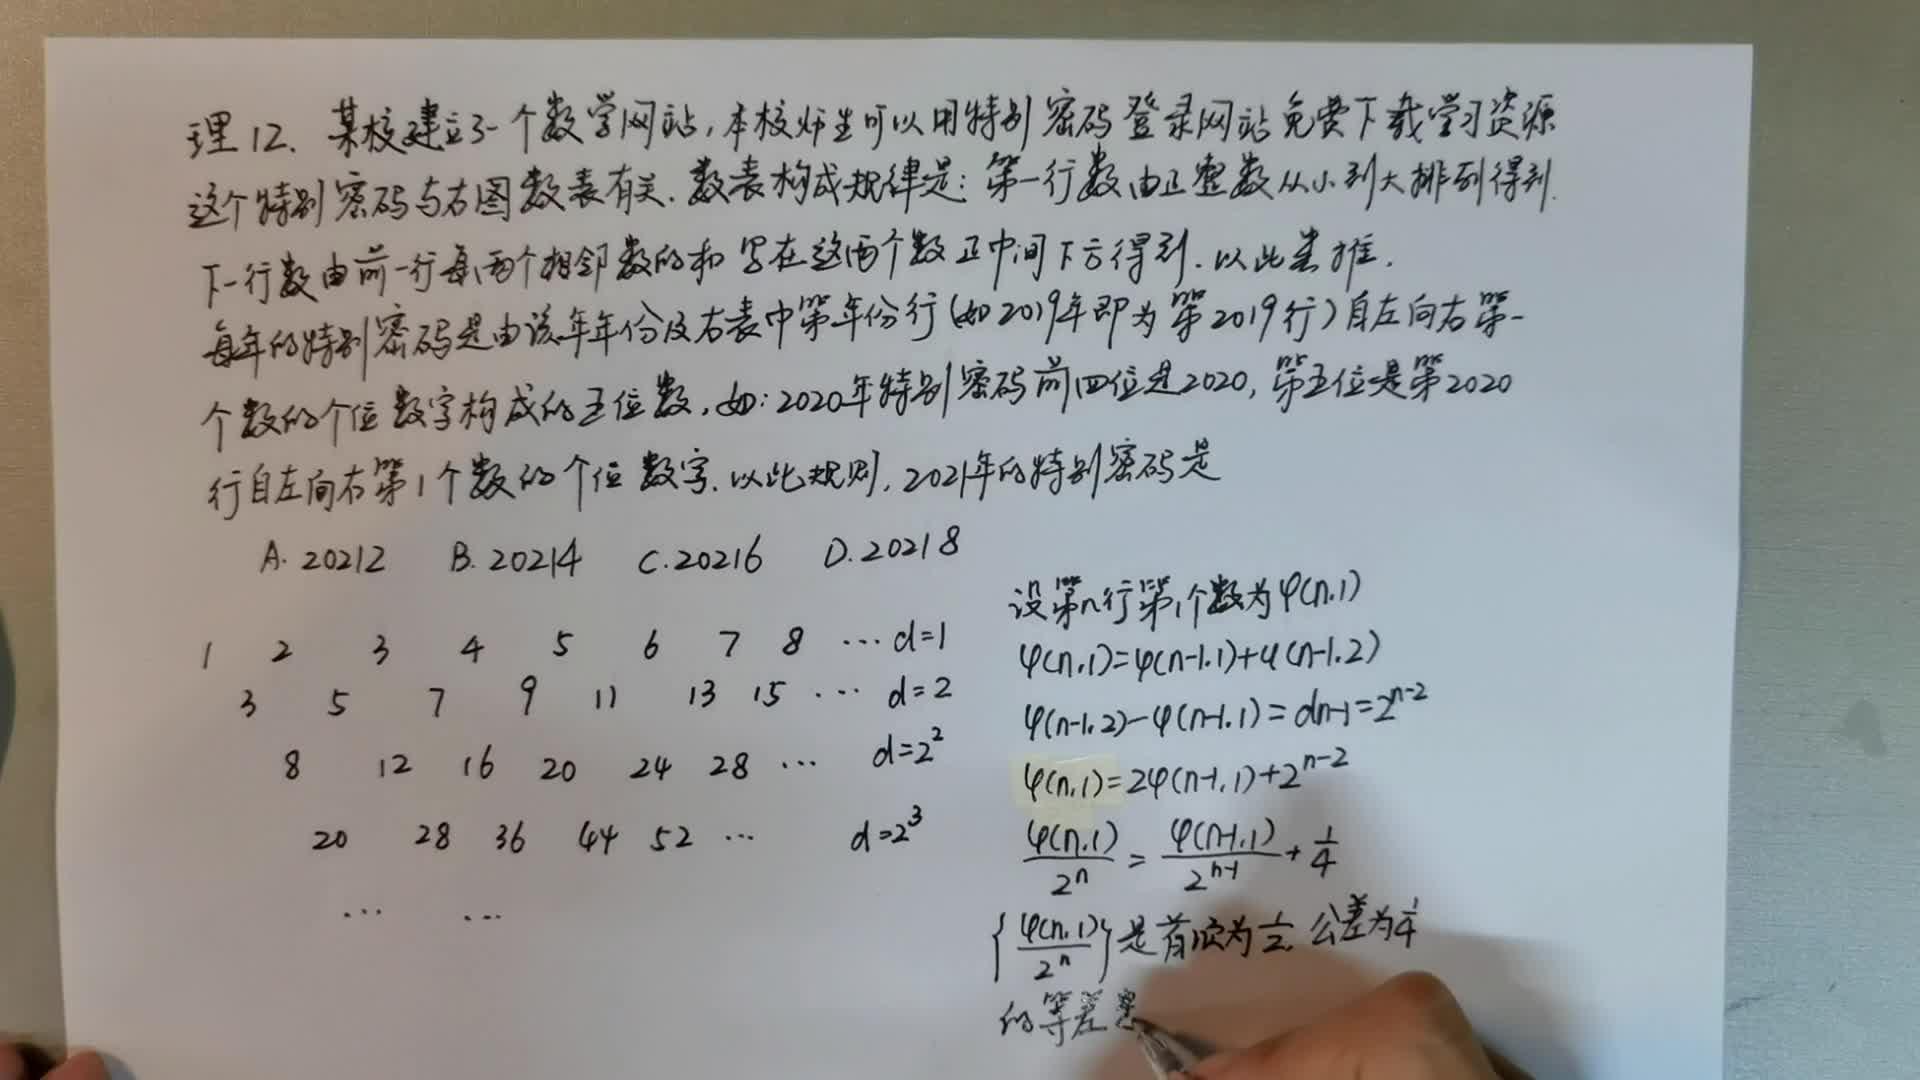 理12. 某校建立了一个数学网站,本校师生可以用特别密码登录网站免费下载学习资源
这个特别密码与右图数表有关.数表构成规律是:第一行数由正整数从小到大排列得到.
下一行数由前一行每两个相邻数的和写在这两个数正中间下方得到.以此类推.
每年的特别密码是由该年年份及右表中第年份行(如2019年即为第2019行)自左向右第一
个数的个位数字构成的五位数,如:2020年特别密码前四位是2020,第五位是第2020
行自左向右第1个数的个位数字.以此规则,2021年的特别密码是
A. 20212 B. 20214 C. 20216 D. 20218
1 2 3 4 5 6 7 8 … d=1
3 5 7 9 11 13 15 … d=2
8 12 16 20 24 28 … d=2²
20 28 36 44 52 … d=2³
… …
设第n行第1个数为φ(n,1)
φ(n,1)=φ(n-1,1)+φ(n-1,2)
φ(n-1,2)-φ(n-1,1)=dn-1=2^{n-2}
φ(n,1)=2φ(n-1,1)+2^{n-2}
φ(n,1)/2^n = φ(n-1,1)/2^{n-1} + 1/4
{φ(n,1)/2^n}是首项为1/2,公差为1/4
的等差